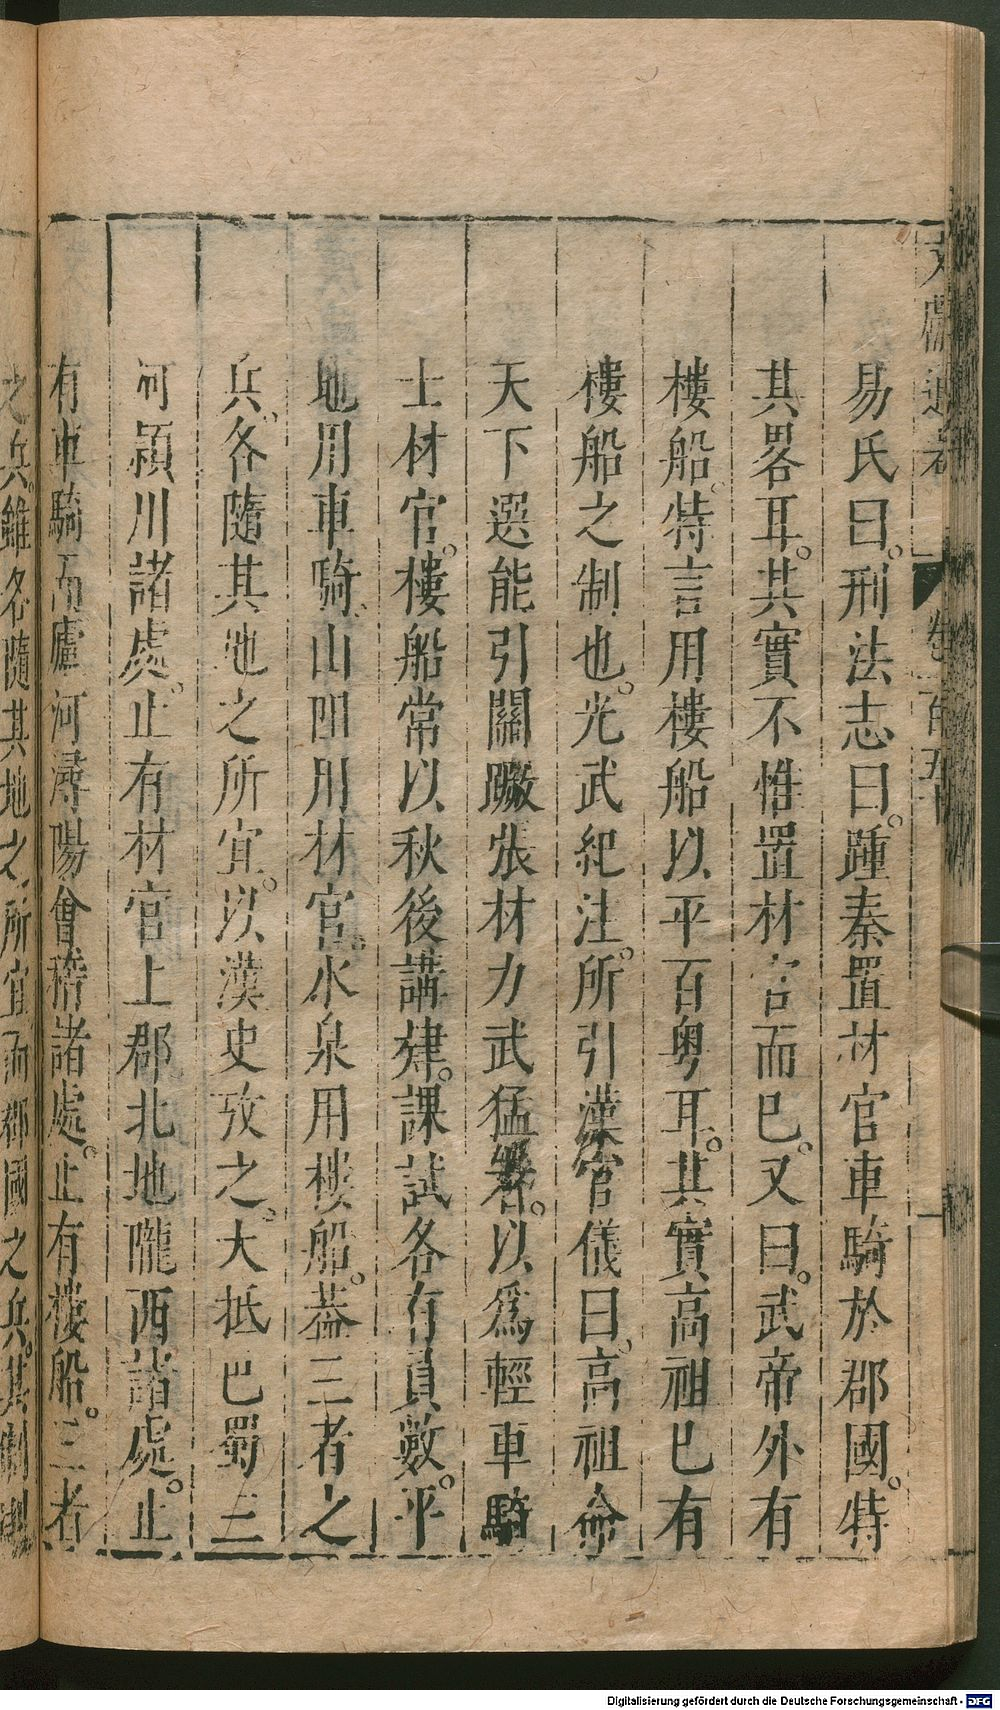 文獻通考 卷一百五十 一
易氏曰。刑法志曰。踵秦置材官車騎於郡國。特
其畧耳。其實不惟置材官而已。又曰。武帝外有
樓船。特言用樓船以平百粤耳。其實高祖已有
樓船之制也。光武紀注。所引漢官儀曰。高祖命
天下選能引關蹶張材力武猛者。以爲輕車騎
士材官。樓船常以秋後講肄。課試各有員數。平
地用車騎。山阻用材官。水泉用樓船。葢三者之
兵。各隨其地之所宜。以漢史攷之。大抵巴蜀三
河潁川諸處。止有材官上郡北地隴西諸處。止
有車騎而廬江潯陽會稽諸處。止有樓船。三者
之兵。雖各隨其地之所宜而郡國之兵。其制則
Digitalisierung gefördert durch die Deutsche Forschungsgemeinschaft - DFG